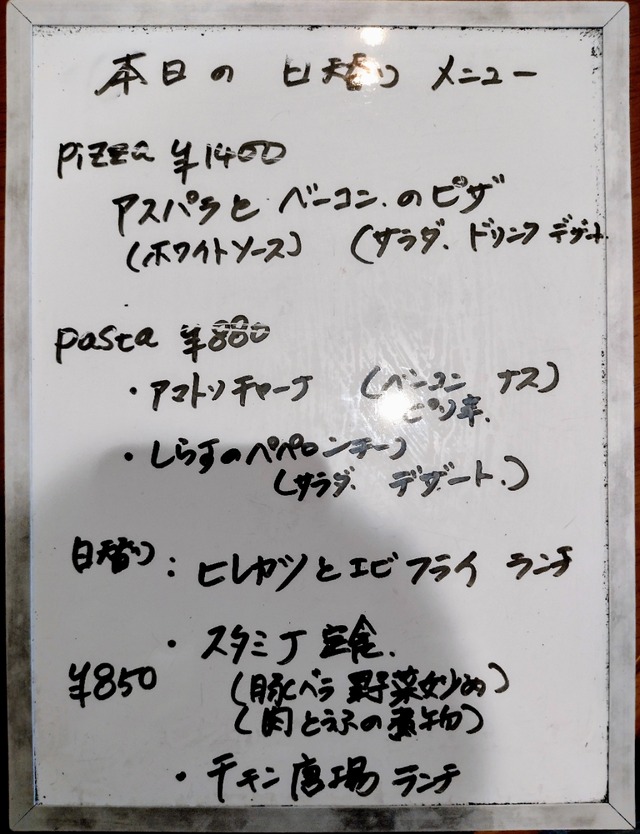 本日の 日替り メニュー
pizza ¥1400
アスパラと ベーコン.のピザ
(ホワイトソース) (サラダ. ドリンク デザート
pasta ¥880
・アマトリチャーナ (ベーコン ナス)
ピリ辛.
・しらすのペペロンチーノ
(サラダ. デザート.)
日替り : ヒレカツとエビフライ ランチ
・スタミナ定食.
¥850 (豚バラ 野菜炒め)
(肉とうふの煮物)
・チキン唐揚 ランチ